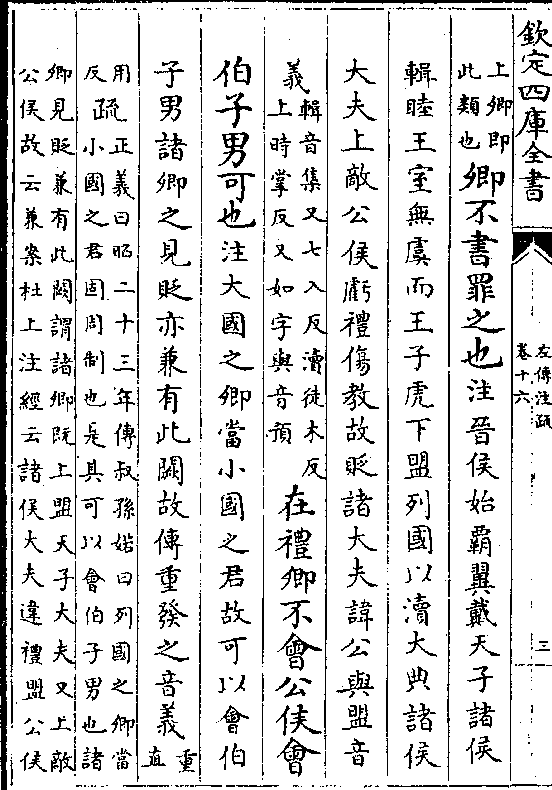 欽定四庫全書
左傳注疏
卷十六
三
上卿即
此類也
卿不書罪之也注晉侯始霸翼戴天子諸侯
輯睦王室無虞而王子虎下盟列國以瀆大典諸侯
大夫上敵公侯虧禮傷教故貶諸大夫諱公與盟音
義
輯音集又七入反瀆徒木反
上時掌反又如字與音預
在禮卿不會公侯會
伯子男可也注大國之卿當小國之君故可以會伯
子男諸卿之見貶亦兼有此闕故傳重發之音義
重
直
用
反
疏
正義曰昭二十三年傳叔孫婼曰列國之卿當
小國之君固周制也是其可以會伯子男也諸
卿見貶兼有此闕謂諸卿既上盟天子大夫又上敵
公侯故云兼案杜上注經云諸侯大夫違禮盟公侯